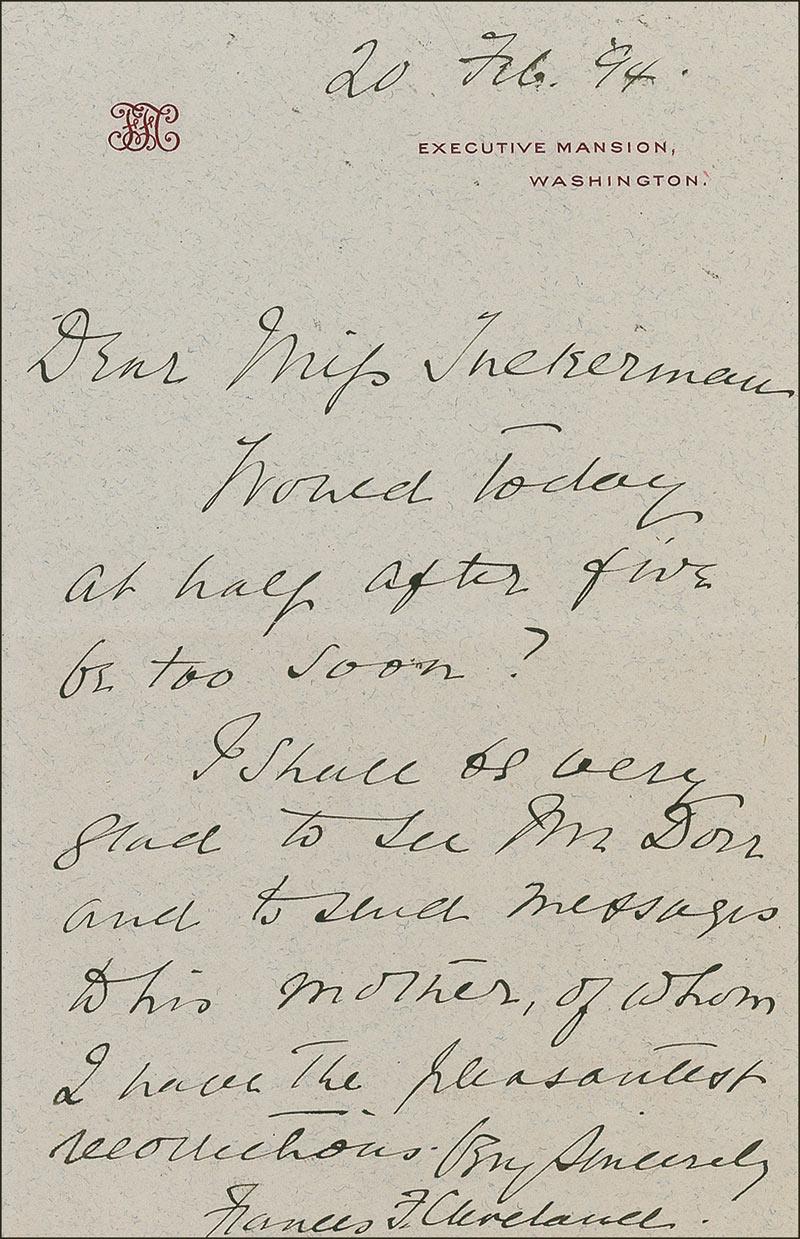 20 Feb. '94.
EXECUTIVE MANSION,
WASHINGTON.
Dear Miss Tuckerman
Would today
at half after five
be too soon?
I shall be very
glad to see Mr Dorr
and to send messages
to his mother, of whom
I have the pleasantest
recollections. Very Sincerely
Frances F. Cleveland.